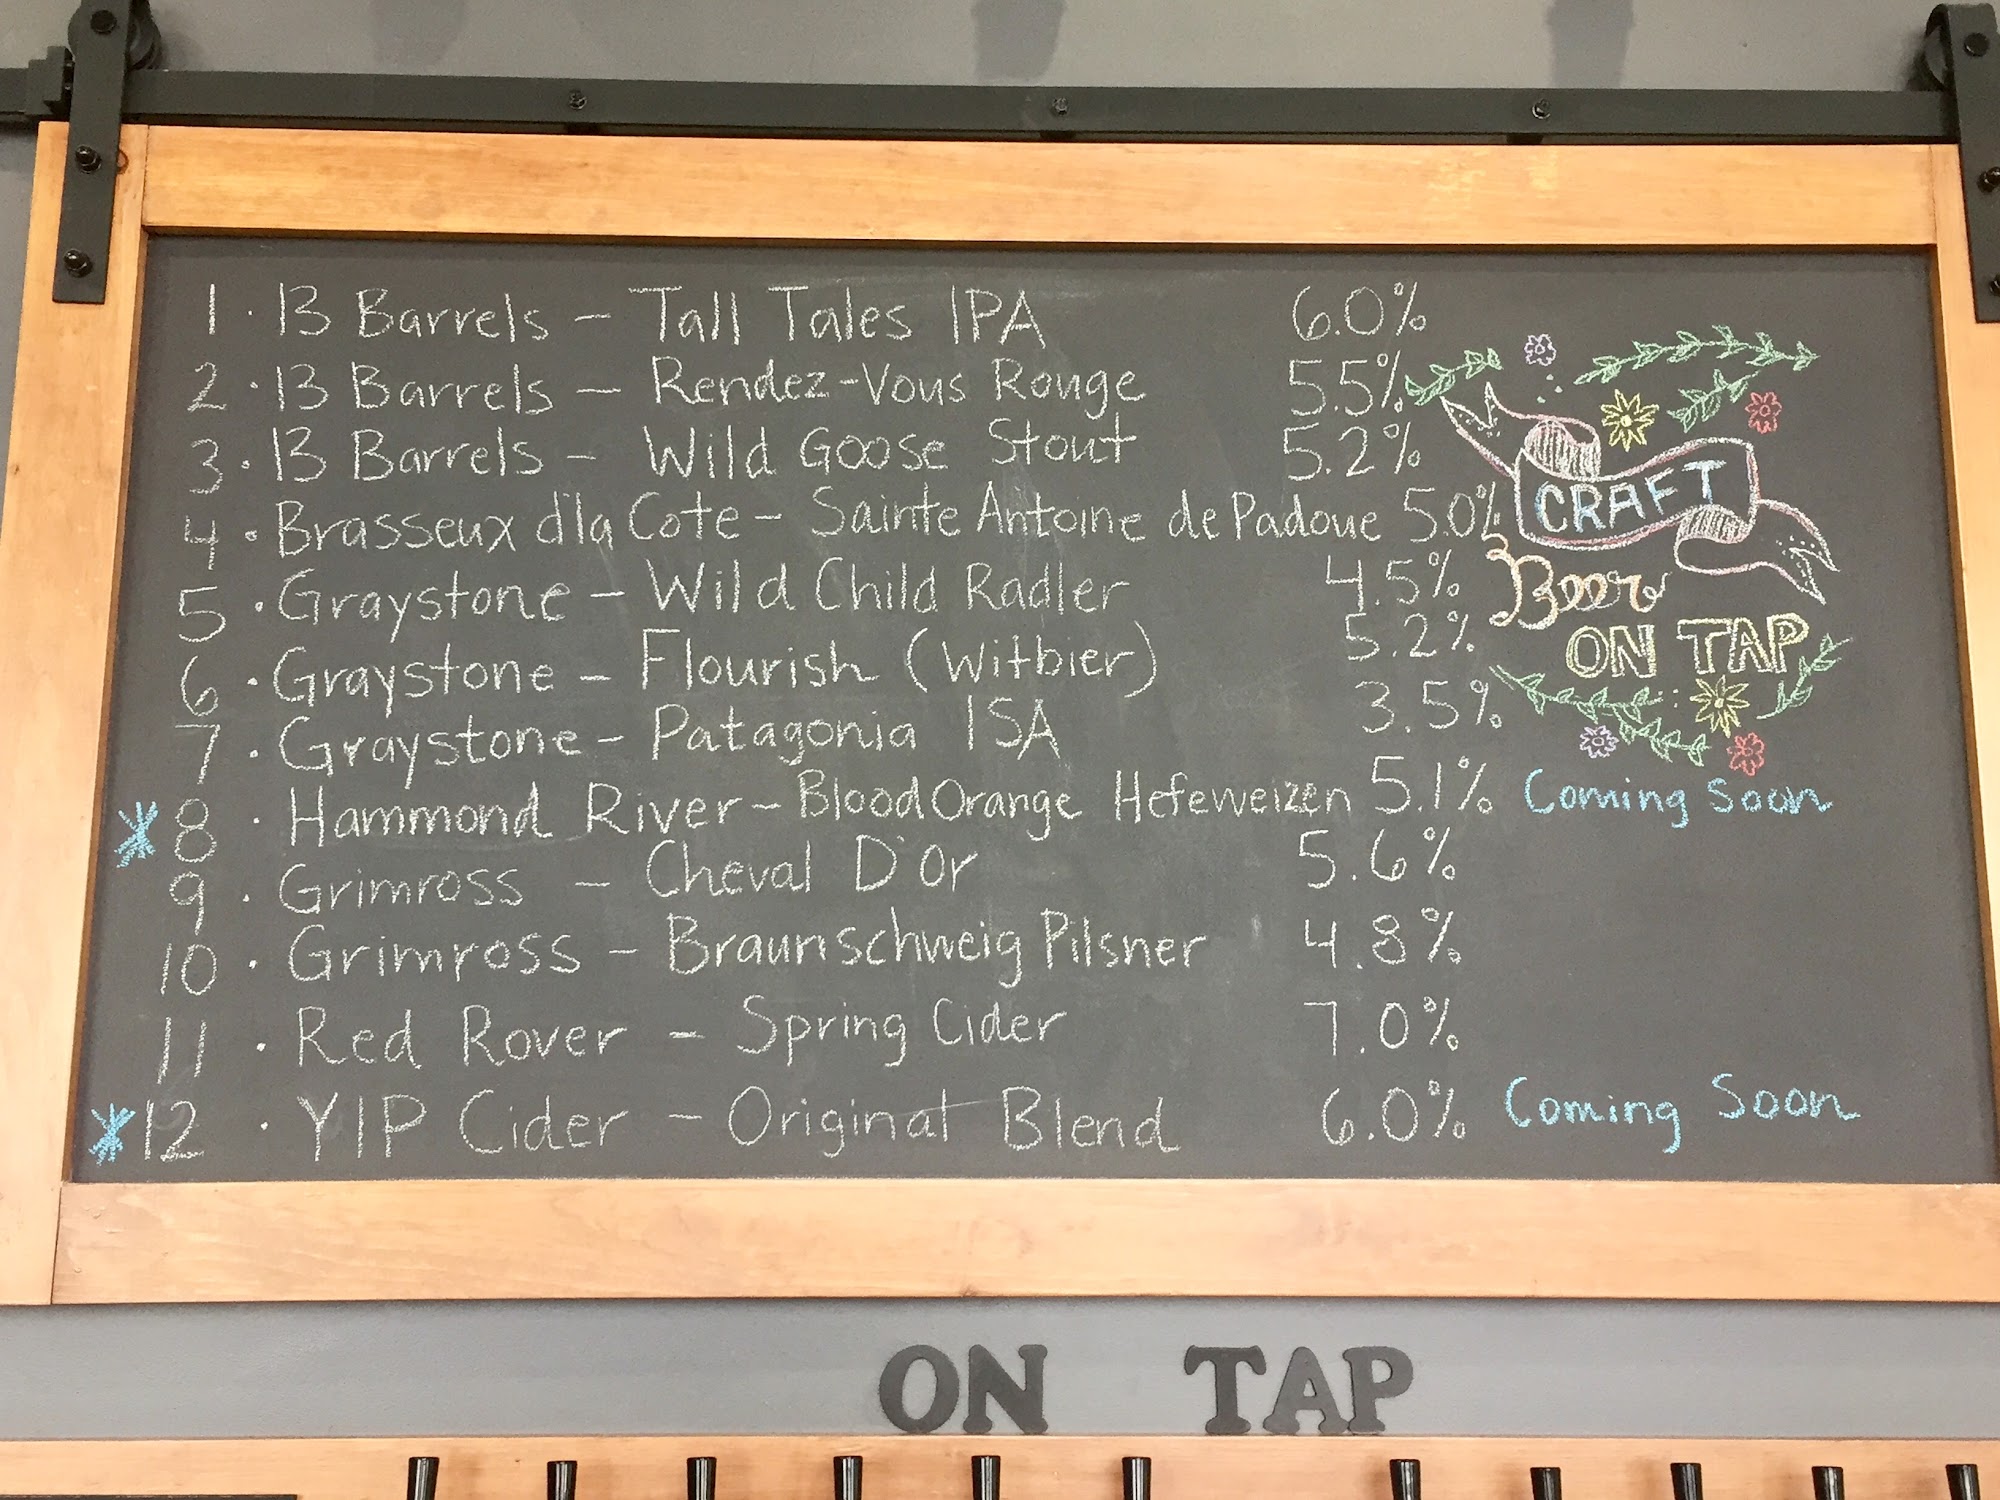 1 · 13 Barrels - Tall Tales IPA 6.0%
2 · 13 Barrels - Rendez-Vous Rouge 5.5%
3 · 13 Barrels - Wild Goose Stout 5.2%
4 · Brasseux d'la Cote - Sainte Antoine de Padoue 5.0%
5 · Graystone - Wild Child Radler 4.5%
6 · Graystone - Flourish (Witbier) 5.2%
7 · Graystone - Patagonia ISA 3.5%
8 · Hammond River - Blood Orange Hefeweizen 5.1% Coming Soon
9 · Grimross - Cheval D'Or 5.6%
10 · Grimross - Braunschweig Pilsner 4.8%
11 · Red Rover - Spring Cider 7.0%
12 · YIP Cider - Original Blend 6.0% Coming Soon
CRAFT
Beer
ON TAP
ON TAP